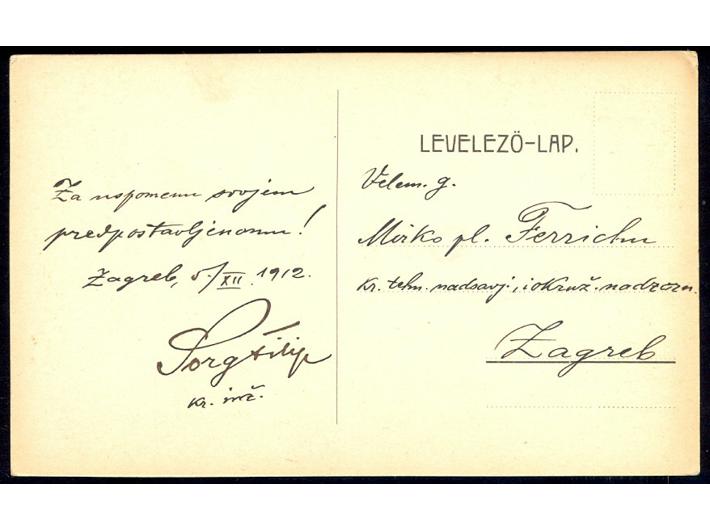 Za uspomenu svojem
predpostavljenomu!
Zagreb, 5/XII. 1912.
Sorg Filip
kr. inž.
LEVELEZŐ-LAP.
Velem. g.
Mirko pl. Ferrichu
kr. tehn. nadsavj. i okruž. nadzorn.
Zagreb